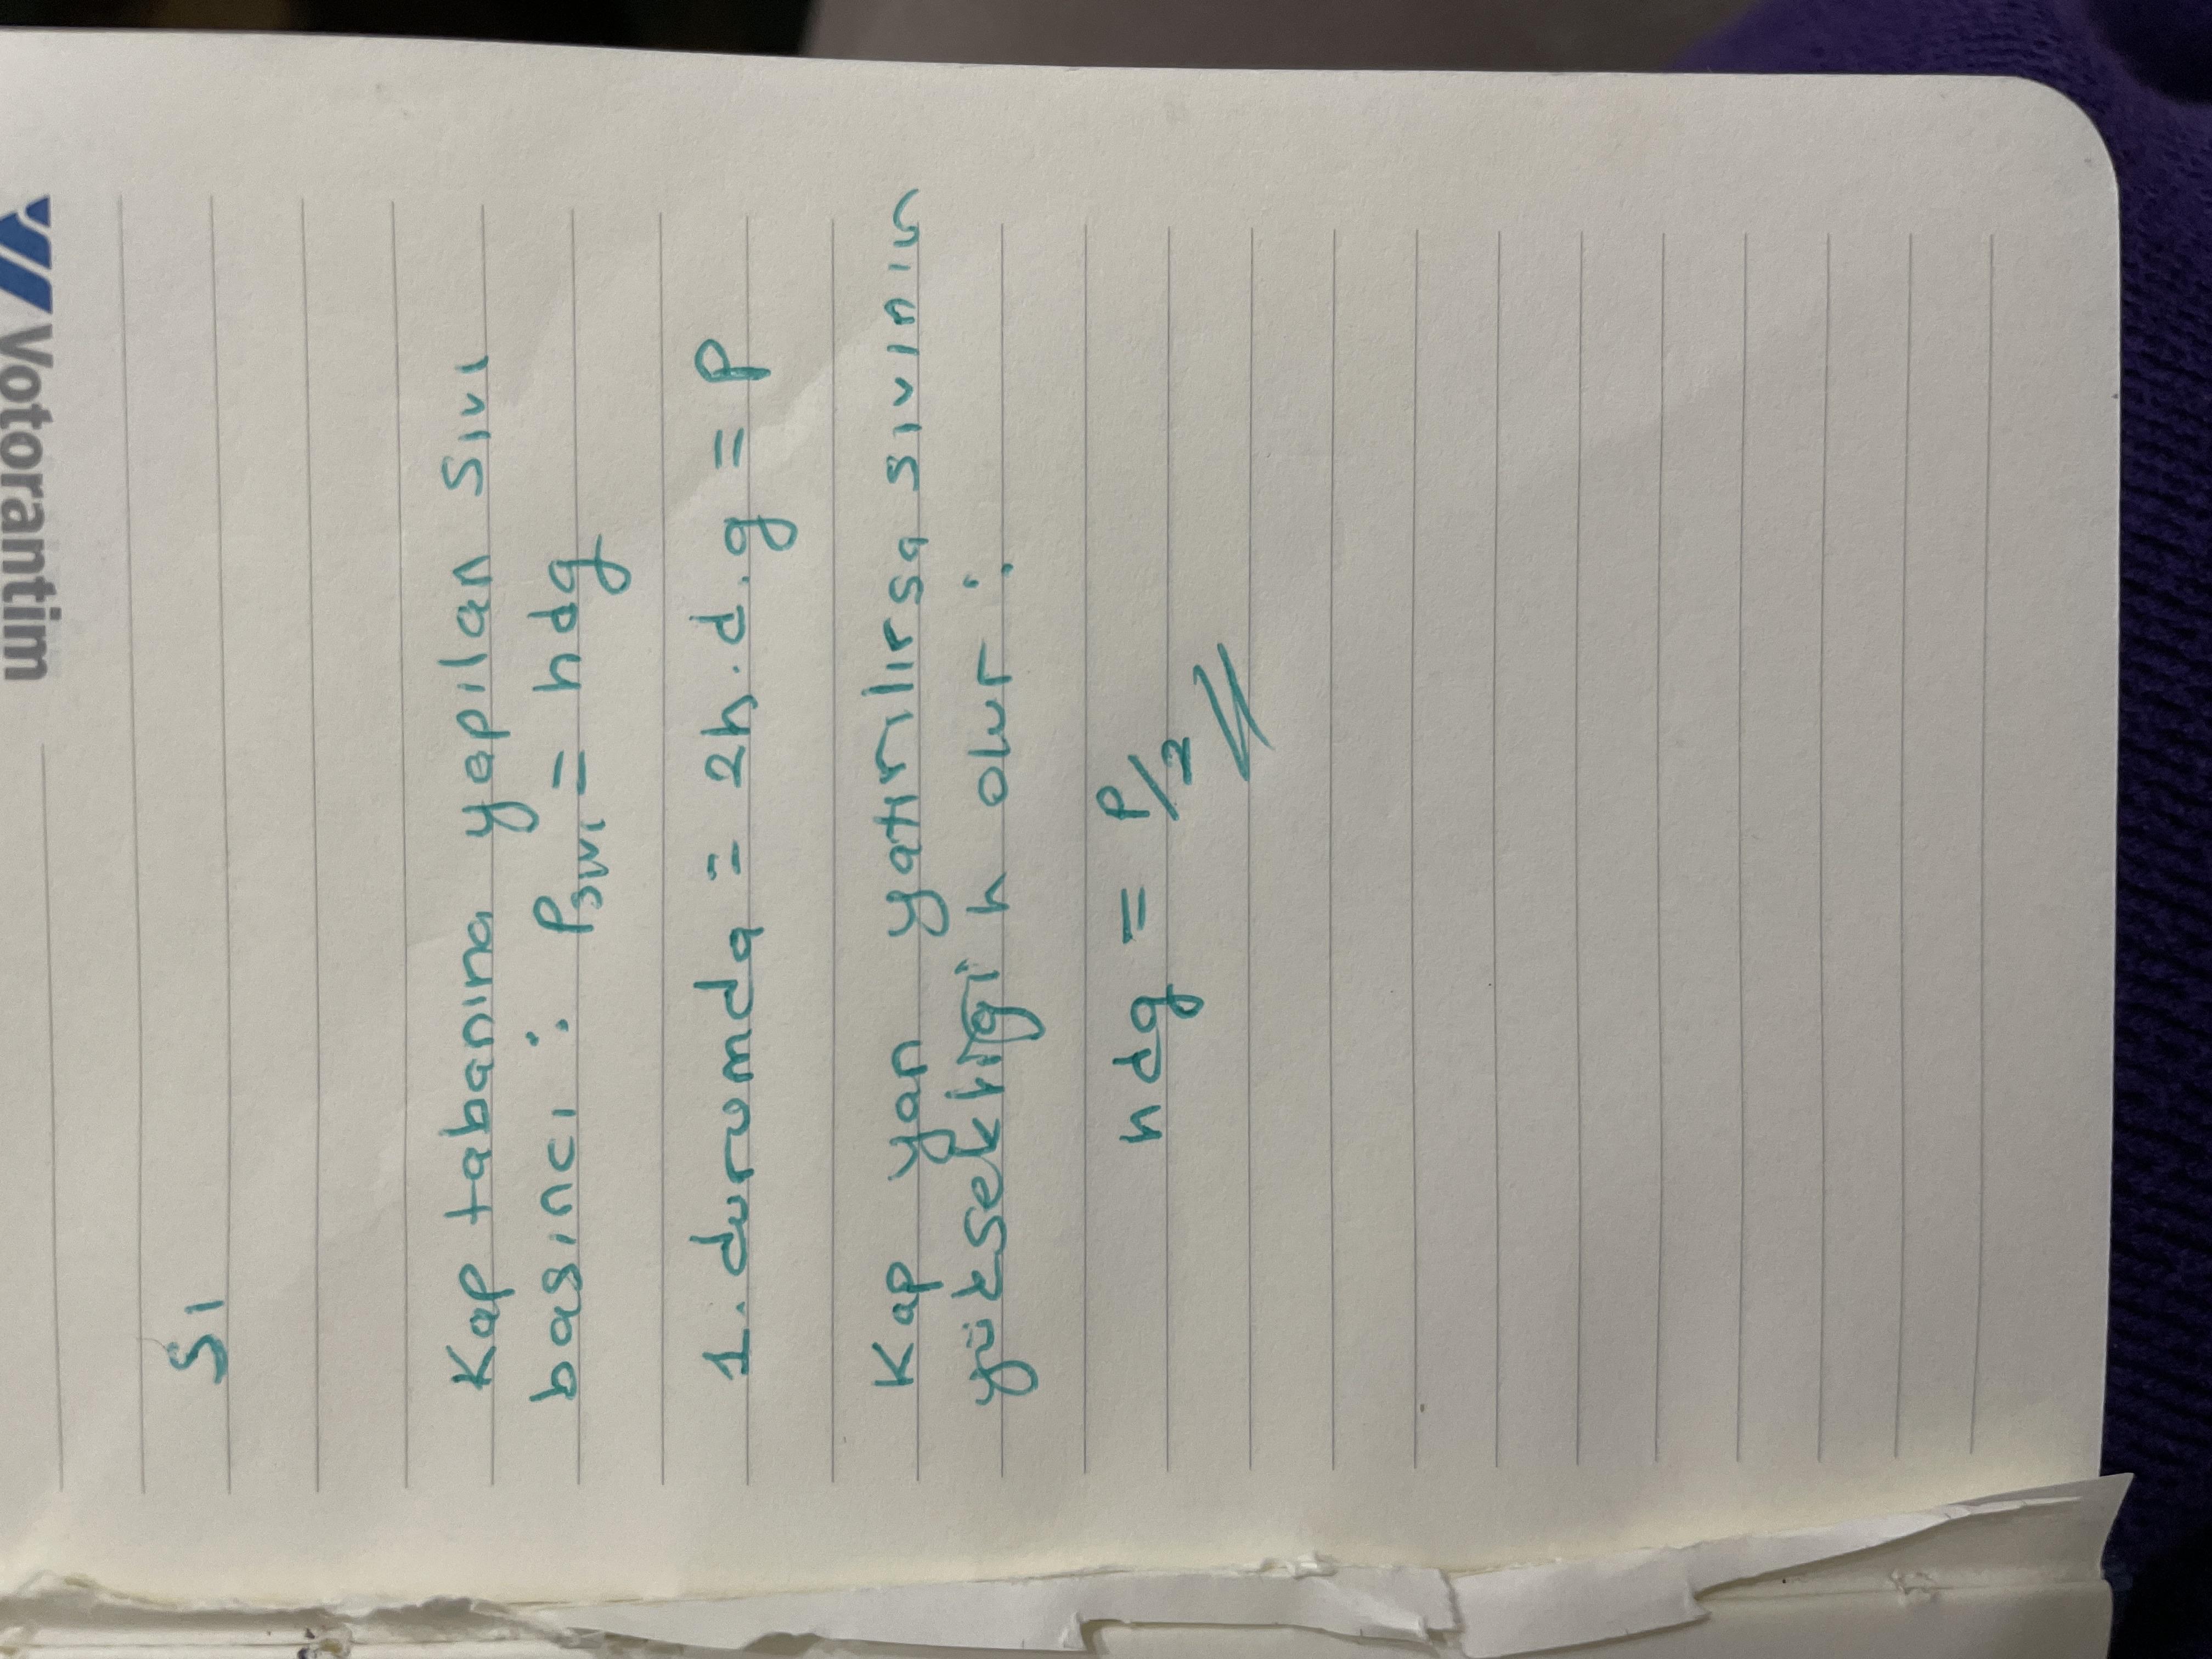 Votorantim
S1
Kap tabanına yapılan sıvı
basıncı : Psıvı = hdg
1. durumda = 2h.d.g = P
Kap yan yatırılırsa sıvının
yüksekliği h olur :
hdg = P/2